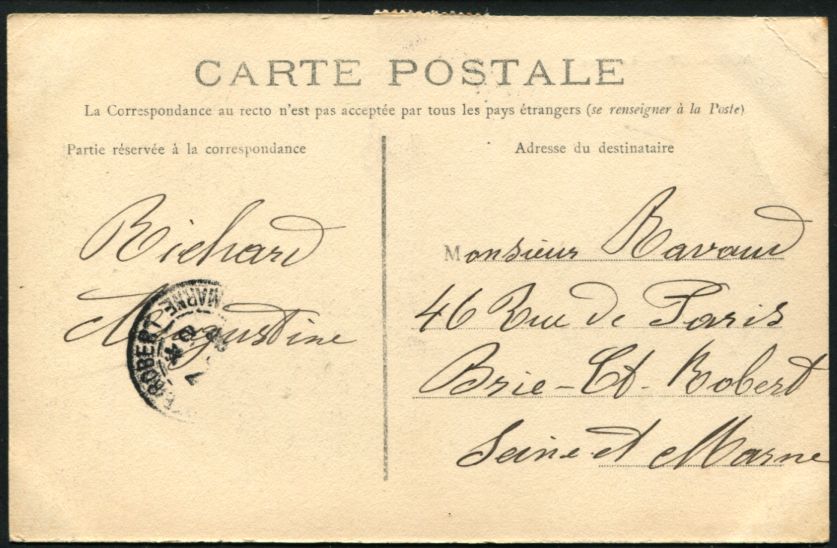 CARTE POSTALE
La Correspondance au recto n'est pas acceptée par tous les pays étrangers (se renseigner à la Poste)
Partie réservée à la correspondance
Richard
Augustine
Adresse du destinataire
Monsieur Ravaud
46 Rue de Paris
Brie-Ct-Robert
Seine et Marne
ROBERT
MARNE